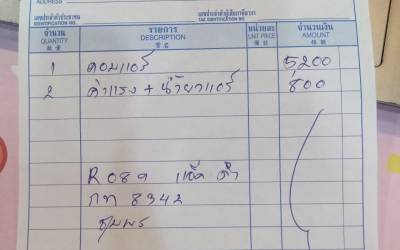 ADDRESS
เลขประจำตัวประชาชน เลขประจำตัวผู้เสียภาษีอากร
IDENTIFICATION NO. TAX IDENTIFICATION NO.
จำนวน รายการ หน่วยละ จำนวนเงิน
QUANTITY DESCRIPTION UNIT PRICE AMOUNT
1 คอมแอร์ 5200
2 ค่าแรง + น้ำยาแอร์ 800
R 089
กท 8342
ชุมพร